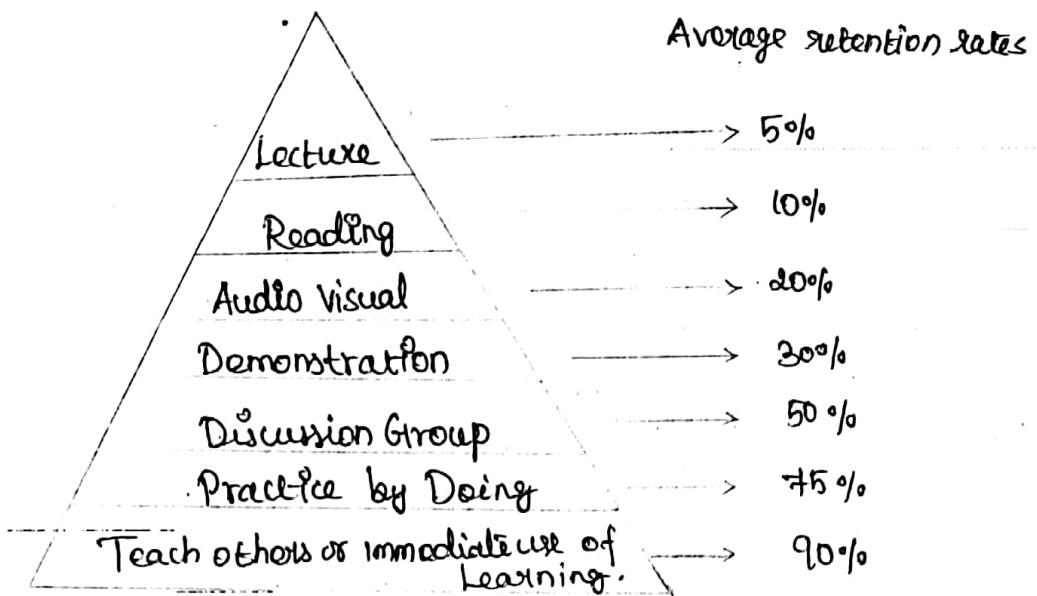 Average retention rates
Lecture 5%
Reading 10%
Audio Visual 20%
Demonstration 30%
Discussion Group 50%
Practice by Doing 75%
Teach others or immediate use of 90%
Learning.